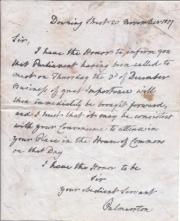 Downing Street 20 November 1857
Sir,
I have the Honor to inform you
that Parliament having been called to
meet on Thursday the 3d of December
Business of great Importance will
then immediately be brought forward,
and I trust that it may be consistent
with your Convenience to attend in
your Place in the House of Commons
on that Day
I have the Honor to be
Sir
your obedient Servant
Palmerston